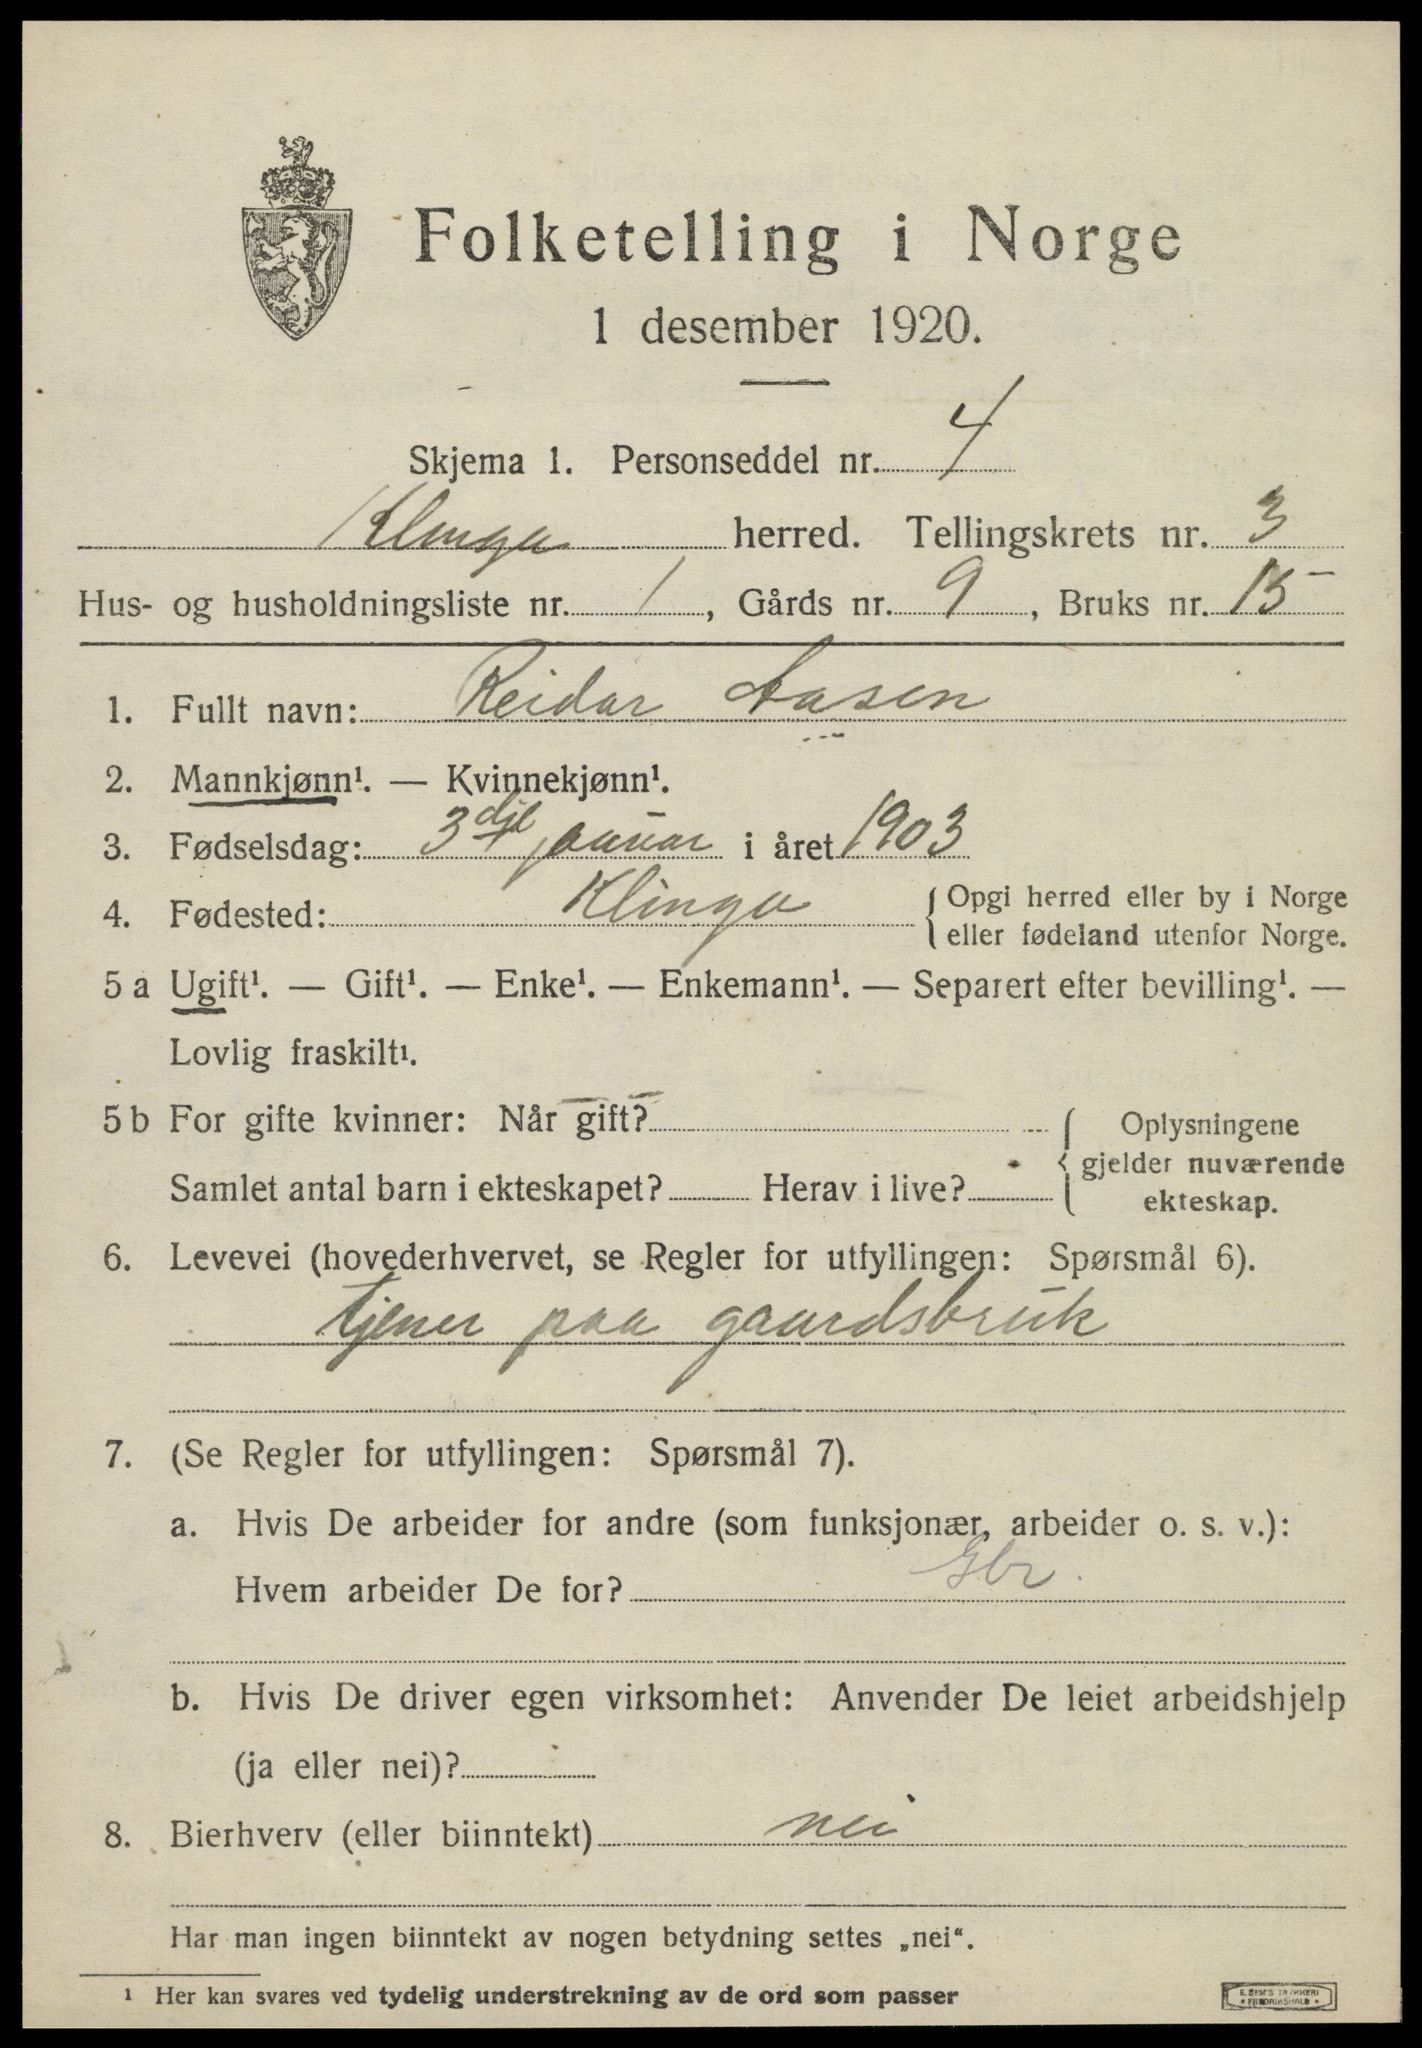 Folketelling i Norge
1 desember 1920.
Skjema 1. Personseddel nr. 4
Klinga herred. Tellingskrets nr. 3
Hus- og husholdningsliste nr. 1, Gårds nr. 9, Bruks nr. 15
1. Fullt navn: Reidar Aasen
2. Mannkjønn¹. — Kvinnekjønn¹.
3. Fødselsdag: 3dje januar i året 1903
4. Fødested: Klinga { Opgi herred eller by i Norge
eller fødeland utenfor Norge.
5 a Ugift¹. — Gift¹. — Enke¹. — Enkemann¹. — Separert efter bevilling¹. —
Lovlig fraskilt¹.
5 b For gifte kvinner: Når gift? { Oplysningene
gjelder nuværende
Samlet antal barn i ekteskapet? Herav i live?
ekteskap.
6. Levevei (hovederhvervet, se Regler for utfyllingen: Spørsmål 6).
tjener paa gaardsbruk
7. (Se Regler for utfyllingen: Spørsmål 7).
a. Hvis De arbeider for andre (som funksjonær, arbeider o. s. v.):
Hvem arbeider De for? Gbr.
b. Hvis De driver egen virksomhet: Anvender De leiet arbeidshjelp
(ja eller nei)?
8. Bierhverv (eller biinntekt) nei
Har man ingen biinntekt av nogen betydning settes „nei“.
¹ Her kan svares ved tydelig understrekning av de ord som passer
E. SEM'S TRYKKERI
FREDRIKSHALD